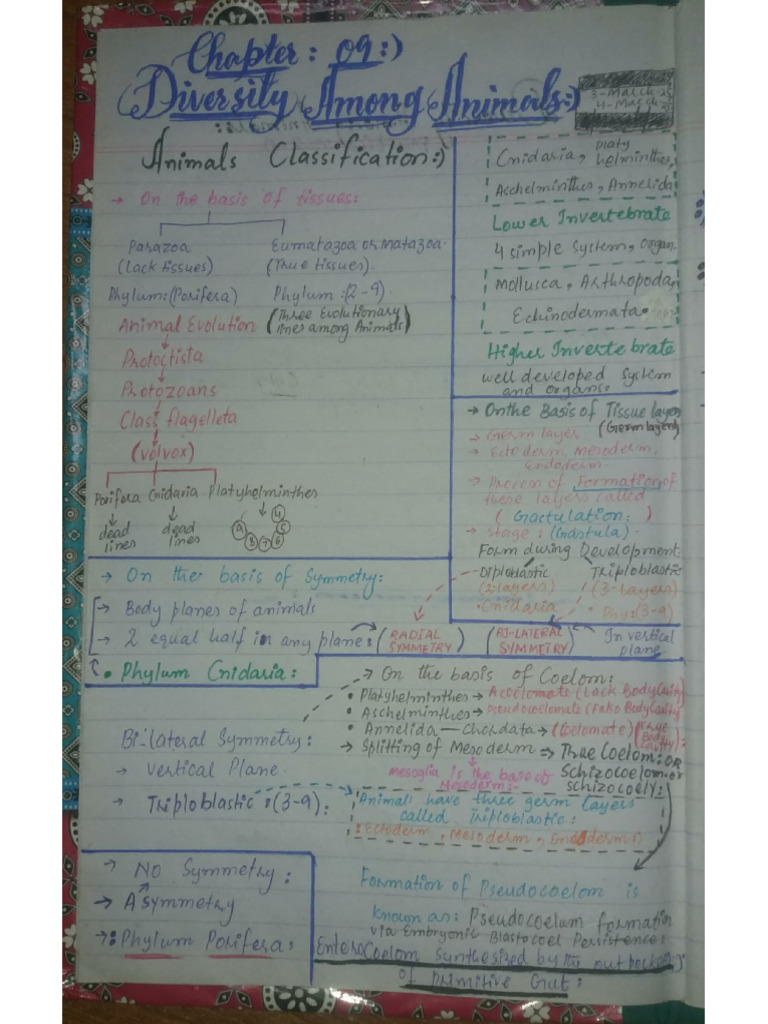 Chapter : 09:)
Diversity Among Animals:)
3-March-2
4-March-2
Animals Classification:)
→ On the basis of tissues:
Parazoa
(Lack tissues)
Phylum:(Porifera)
Eumatazoa or Matazoa.
(True tissues).
Phylum :(2-9)
(Three Evolutionary
lines among Animals)
Animal Evolution
Protoctista
Protozoans
Class flagelleta
(volvox)
Porifera Cnidaria Platyhelminthes
dead
lines
dead
lines
4
5
6
7
8
9
Cnidaria, Platy
helminthes,
Aschelminthes, Annelida
Lower Invertebrate
4 simple system, organ
Mollusca, Arthropoda,
Echinodermata.
Higher Invertebrate
well developed system
and organs:
→ On the Basis of Tissue layer
(Germ layers)
→ Germ layer
→ Ectoderm, Mesoderm,
Endoderm.
→ Process of Formation of
these layers called
( Gactulation: )
→ stage : (Gastula).
Form during Development:
Diploblastic
(2-layers)
• Cnidaria
Triploblastic
(3-layers)
• Phy:(3-9)
→ On the basis of Symmetry:
→ Body planes of animals
→ 2 equal half in any plane: (RADIAL
SYMMETRY)
(BI-LATERAL
SYMMETRY)
In vertical
plane
• Phylum Cnidaria:
→ On the basis of Coelom:
• Platyhelminthes → Acoelomate (Lack Body Cavity)
• Aschelminthes → Pseudocoelomate (False Body Cavity)
• Annelida — Chordata → (Coelomate) (True
Body
Cavity):
→ Splitting of Mesoderm ⇒ True Coelom: OR
Schizocoelom: or
schizocoely:
mesoglia is the base of
Mesoderm:-
Bi-lateral Symmetry:
→ Vertical Plane.
→ Triploblastic :(3-9):
Animals have three germ layers
called Triploblastic:
:Ectoderm, Mesoderm, Endoderm:)
→ No Symmetry:
→ Asymmetry
→ :Phylum Porifera:
Formation of Pseudocoelom is
known as: Pseudocoelum formation
via Embryonic Blastocoel Persistence:
EnteroCoelom synthesized by the out pocketing
of primitive Gut: